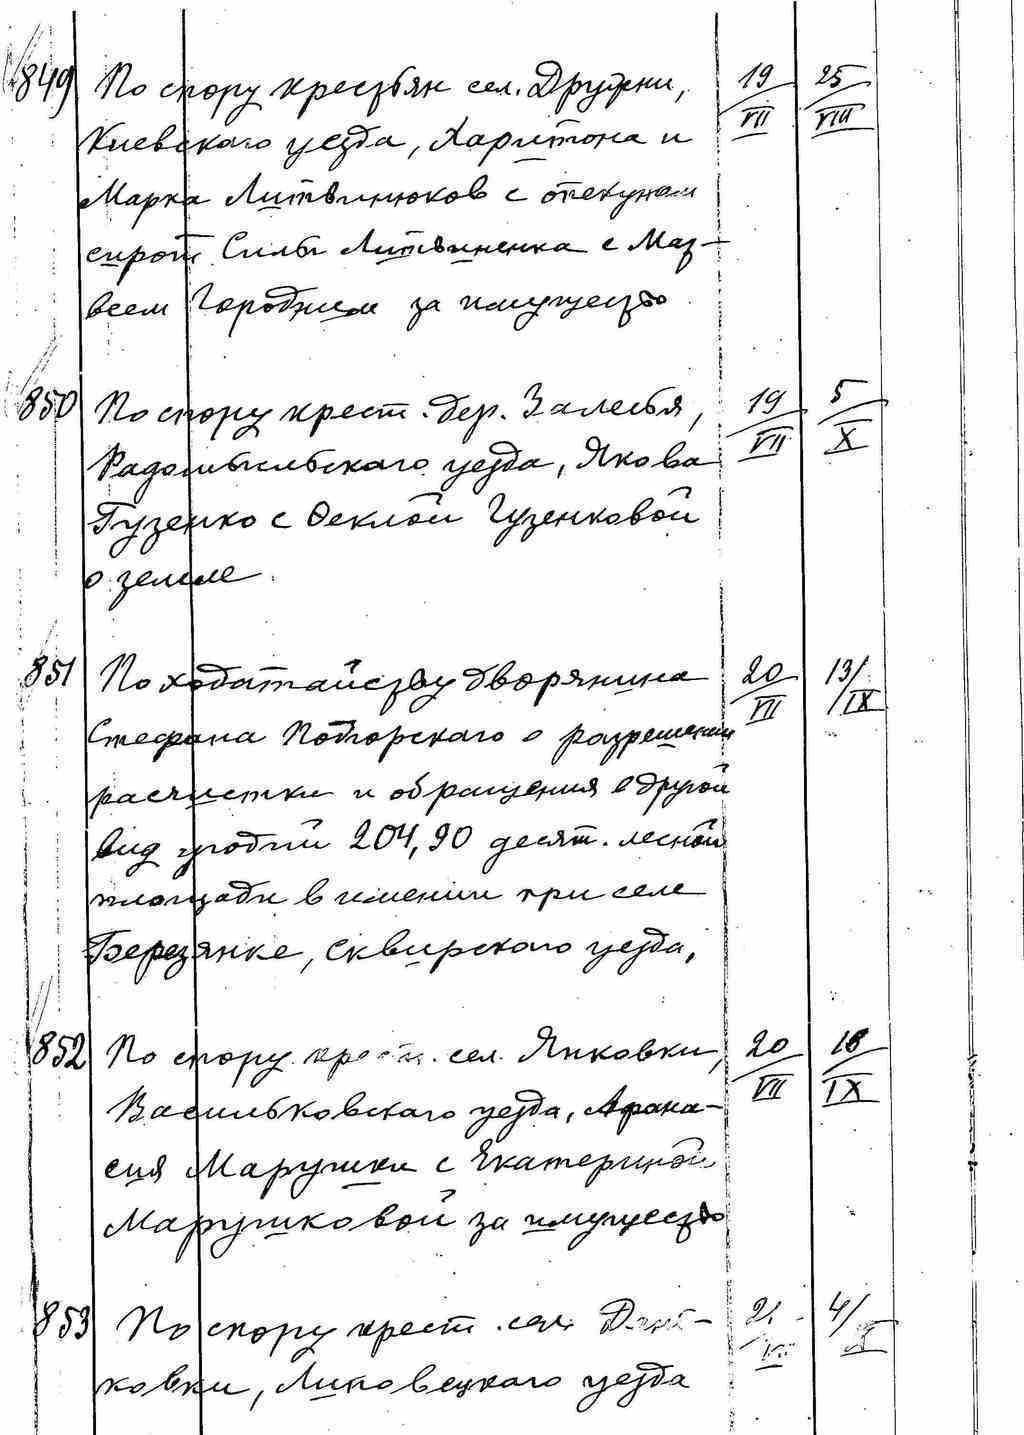 849 По спору крестьян сел. Дружни, 19/VII 25/VIII
Киевского уезда, Харитона и
Марка Литвинюков с опекуном
сирот Силы Литвиненка с Мат-
веем Городним за имущество
850 По спору крест. дер. Залесья, 19/VII 5/X
Радомысльского уезда, Якова
Гузенко с Феклой Гузенковой
о земле.
851 По ходатайству дворянина 20/VII 13/IX
Стефана о разрешении
расчистки и обращения в другой
вид угодий 204,90 десят. лесной
площади в имении при селе
Березянке, Сквирского уезда,
852 По спору крест. сел. Янковки, 20/VII 18/IX
Васильковского уезда, Афана-
сия Марушки с Екатериной
Марушковой за имущество
853 По спору крест. сел.
ковки, Липовецкого уезда